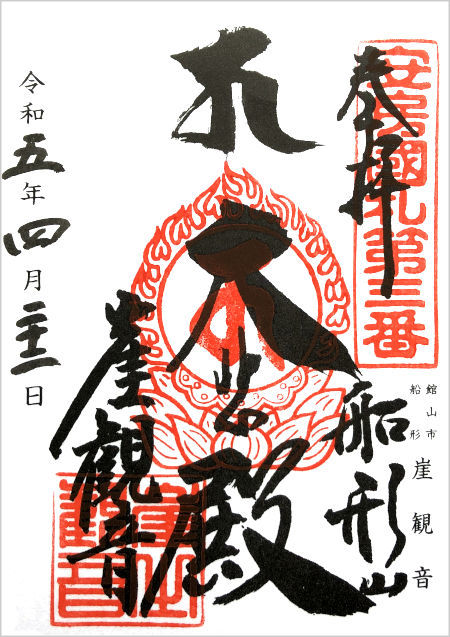 奉拝
安房國札第三番
船形山
館山市
船形
崖観音
大悲殿
崖觀音
令和五年四月二十三日